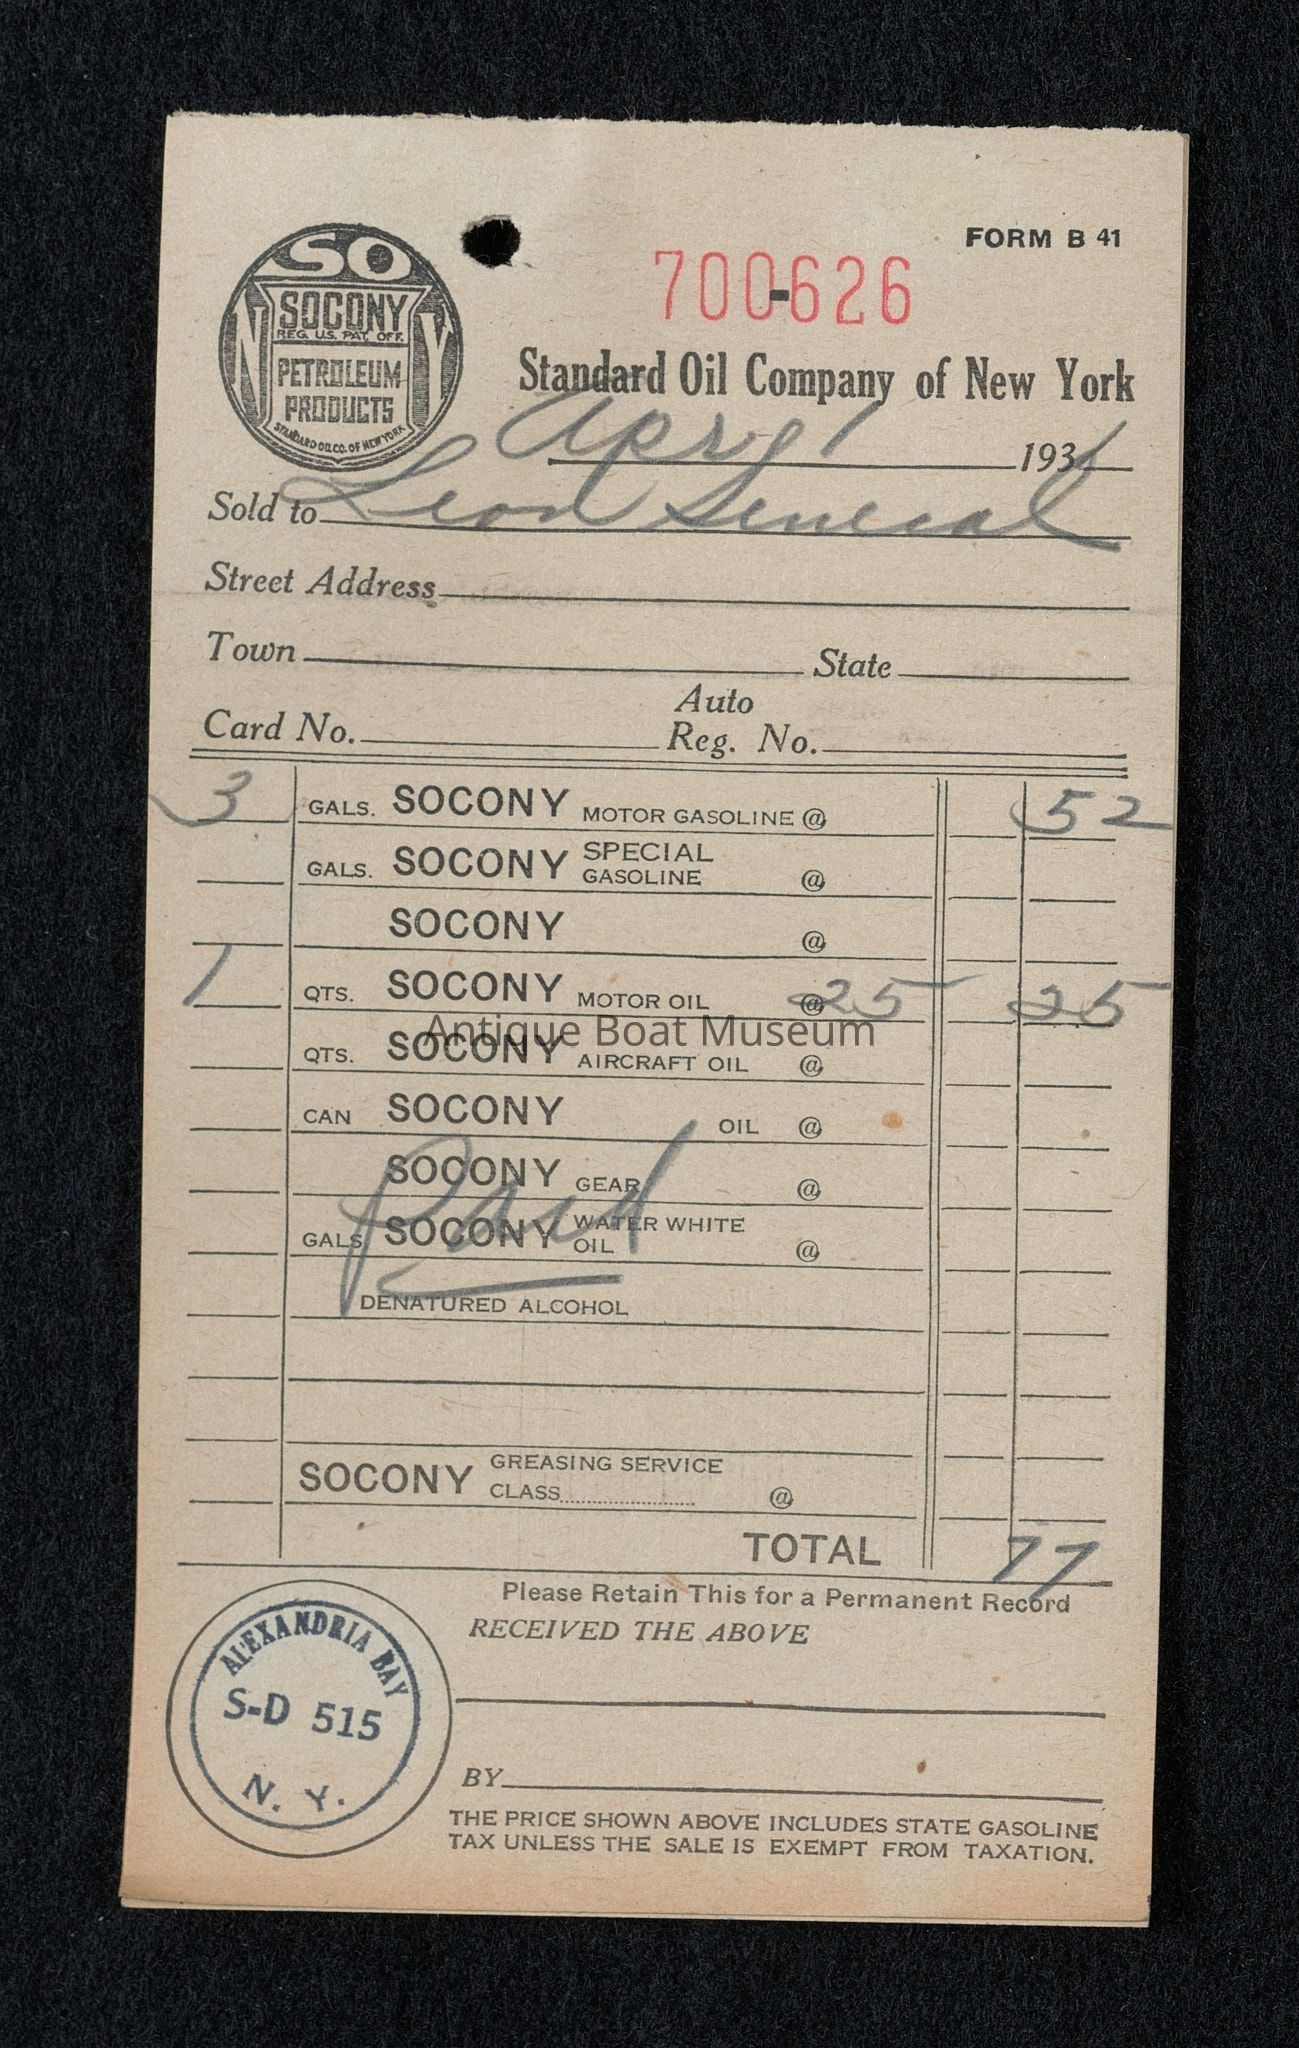 SO
NY
SOCONY
REG. U.S. PAT. OFF.
PETROLEUM
PRODUCTS
STANDARD OIL CO. OF NEW YORK
FORM B 41
700-626
Standard Oil Company of New York
1931
Sold to Leon
Street Address
Town State
Auto
Card No. Reg. No.
3 GALS. SOCONY MOTOR GASOLINE @ 52
GALS. SOCONY SPECIAL GASOLINE @
SOCONY @
1 QTS. SOCONY MOTOR OIL @ 25 25
Antique Boat Museum
QTS. SOCONY AIRCRAFT OIL @
CAN SOCONY OIL @
SOCONY GEAR @
Paid
GALS SOCONY WATER WHITE OIL @
DENATURED ALCOHOL
SOCONY GREASING SERVICE
CLASS @
TOTAL 77
Please Retain This for a Permanent Record
RECEIVED THE ABOVE
ALEXANDRIA BAY
S-D 515
N. Y.
BY
THE PRICE SHOWN ABOVE INCLUDES STATE GASOLINE
TAX UNLESS THE SALE IS EXEMPT FROM TAXATION.